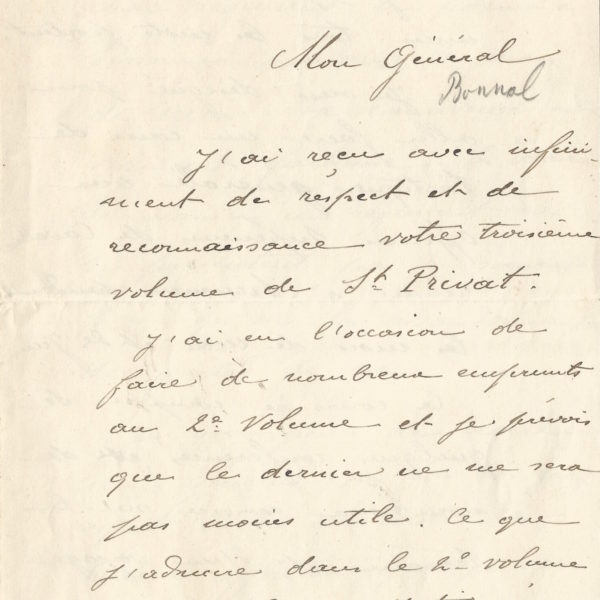 Mon Général
Bonnal
J'ai reçu avec infini-
ment de respect et de
reconnaissance votre troisième
volume de St Privat.
J'ai eu l'occasion de
faire de nombreux emprunts
au 2e volume et je prévois
que le dernier ne me sera
pas moins utile. Ce que
j'admire dans le 2e volume